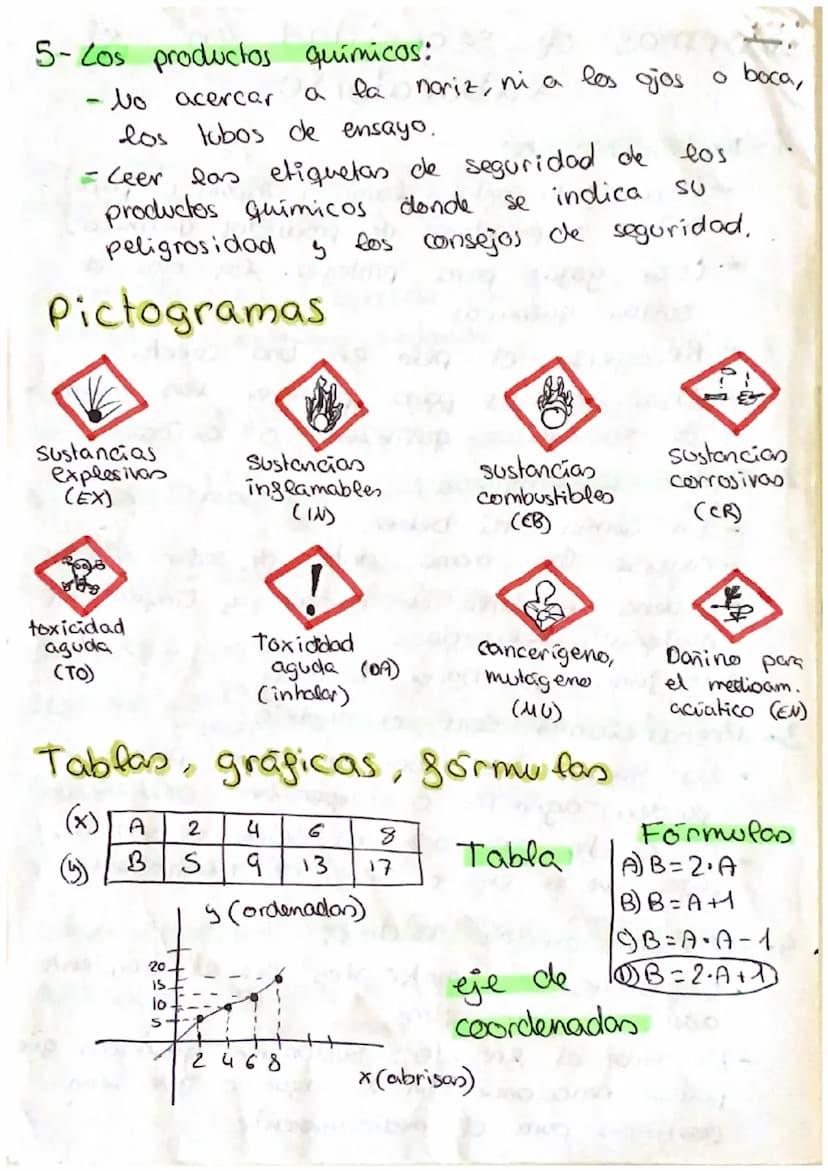 5- Los productos químicos:
- No acercar a la nariz, ni a los ojos o boca,
los tubos de ensayo.
- Leer las etiquetas de seguridad de los
productos químicos donde se indica su
peligrosidad y los consejos de seguridad.
Pictogramas
Sustancias
explosivas
(EX)
Sustancias
inflamables
(IN)
sustancias
combustibles
(CB)
Sustancias
corrosivas
(CR)
toxicidad
aguda
(TO)
Toxicidad
aguda (DA)
(inhalar)
cancerígeno,
mutágeno
(MU)
Dañino para
el medioam.
acúatico (EN)
Tablas, gráficas, fórmulas
(x) A 2 4 6 8
(y) B 5 9 13 17
Tabla
Fórmulas
A) B=2·A
B) B=A+1
C) B=A·A-1
D) B=2·A+1
y (ordenadas)
20
15
10
5
2 4 6 8
x (abrisas)
eje de
coordenadas